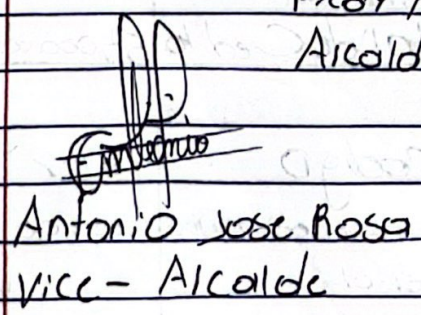 Alcald
Antonio Jose Rosa
Vice - Alcalde